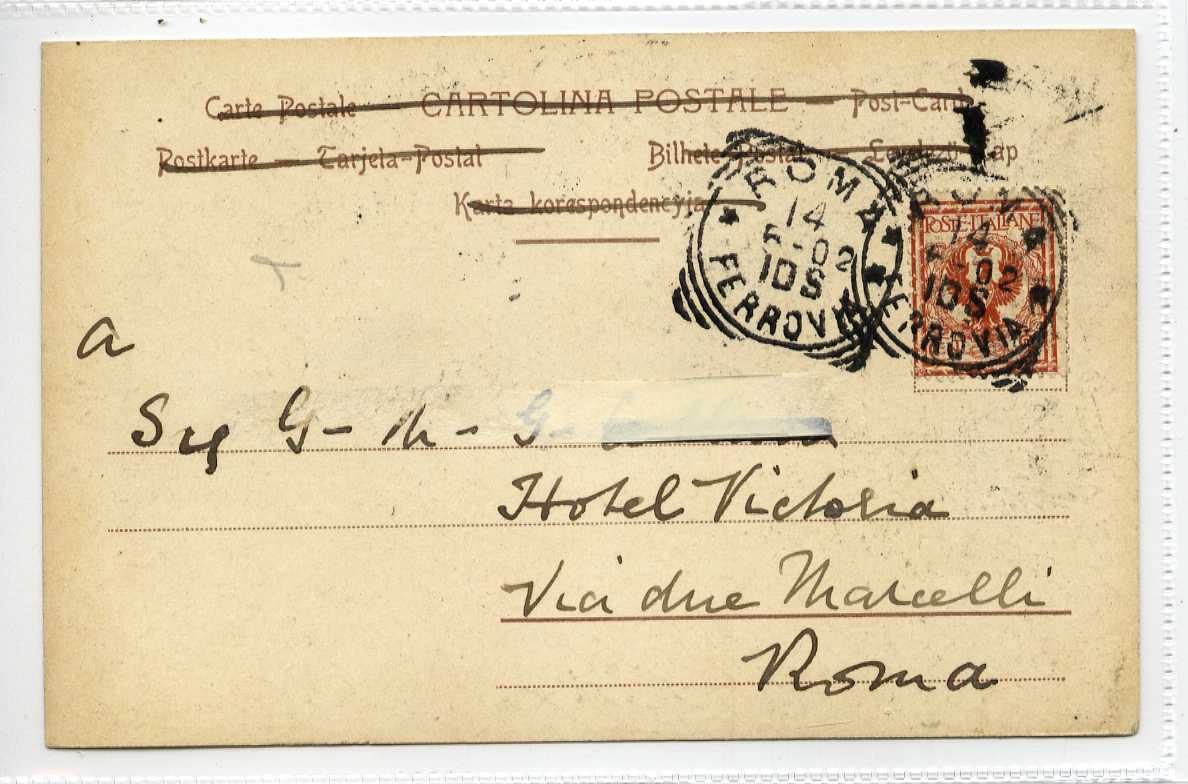 Carte Postale — CARTOLINA POSTALE — Post-Card
Postkarte — Tarjeta-Postal Bilhete-Postal —
Karta korespondencyja
ROMA
14
02
10 S
FERROVIA
ROMA
14
02
10 S
FERROVIA
POSTE·ITALIANE
a
Sig G - M - G -
Hotel Victoria
Via due Macelli
Roma